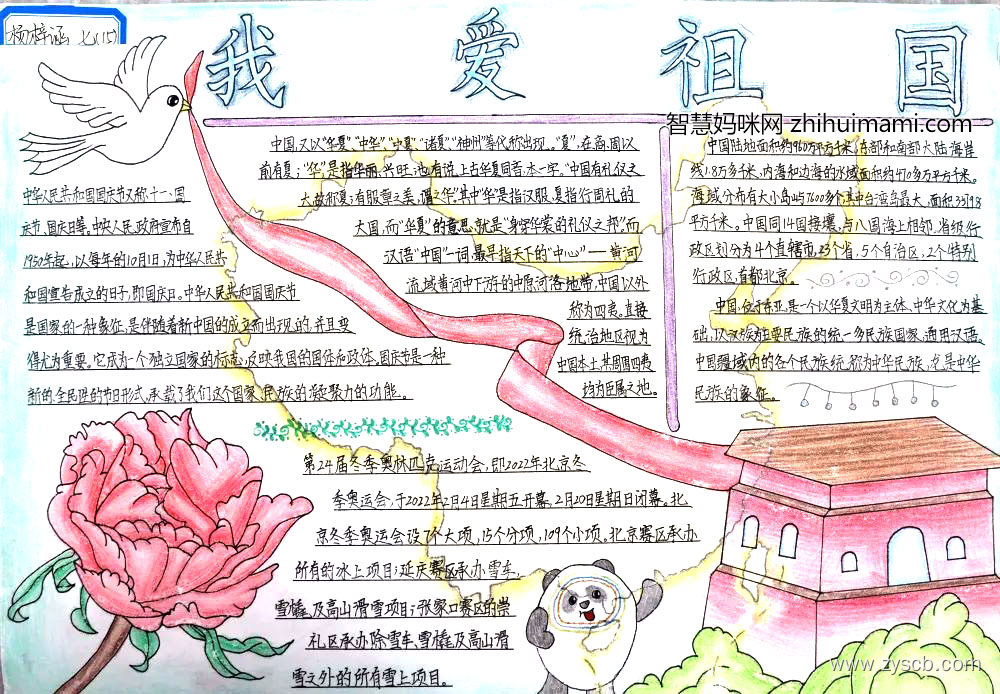 杨梓涵 七(15)
我爱祖国
智慧妈咪网 zhihuimami.com
中华人民共和国国庆节又称:十一、国
庆节、国庆日等,中央人民政府宣布自
1950年起,以每年的10月1日,为中华人民共
和国宣告成立的日子,即国庆日。中华人民共和国国庆节
是国家的一种象征,是伴随着新中国的成立而出现的,并且变
得尤为重要。它成为一个独立国家的标志,反映我国的国体和政体,国庆节是一种
新的、全民性的节日形式,承载了我们这个国家、民族的凝聚力的功能。
中国,又以“华夏”、“中华”、“中夏”、“诸夏”、“神州”等代称出现。“夏”,在商、周以
前有夏;“华”,是指华丽、兴旺;也有说,上古华夏同音,本一字。“中国有礼仪之
大,故称夏;有服章之美,谓之华”,其中“华”是指汉服,夏指行周礼的
大国,而“华夏”的意思,就是“身穿华裳的礼仪之邦”,而
汉语“中国”一词,最早指天下的“中心”——黄河
流域黄河中下游的中原河洛地带,中国以外
称为四夷,直接
统治地区视为
中国本土,其周围四夷
均为臣属之地。
中国陆地面积约960万平方千米,东部和南部大陆海岸
线1.8万多千米,内海和边海的水域面积约470多万平方千米。
海域分布有大小岛屿7600多个,其中台湾岛最大,面积35798
平方千米。中国同14国接壤,与八国海上相邻,省级行
政区划分为4个直辖市,23个省,5个自治区,2个特别
行政区,首都北京。
中国,位于东亚,是一个以华夏文明为主体、中华文化为基
础,以汉族为主要民族的统一多民族国家,通用汉语。
中国疆域内的各个民族统称为中华民族,龙是中华
民族的象征。
第24届冬季奥林匹克运动会,即2022年北京冬
季奥运会,于2022年2月4日星期五开幕,2月20日星期日闭幕。北
京冬季奥运会设7个大项,15个分项,109个小项。北京赛区承办
所有的冰上项目;延庆赛区承办雪车、
雪橇及高山滑雪项目;张家口赛区的崇
礼区承办除雪车、雪橇及高山滑
雪之外的所有雪上项目。
www.zyscb.com